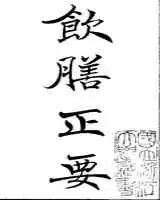 飲膳正要